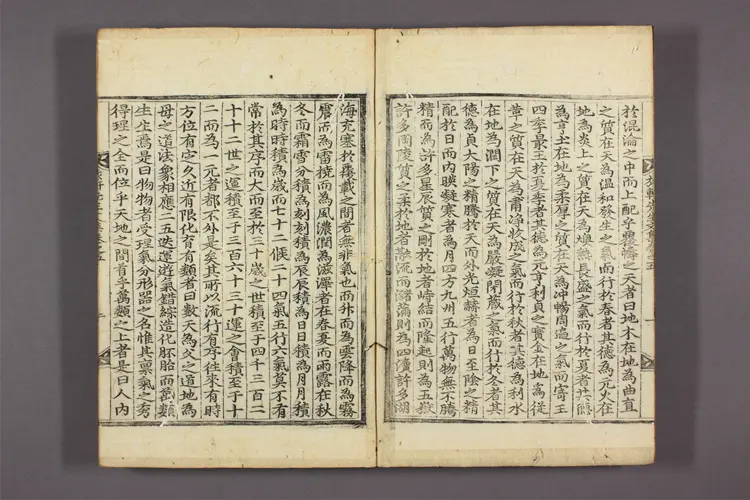 於混淪之中而上配乎覆幬之天者曰地木在地為曲直
之質在天為溫和發生之氣而行於春者其德為元火在
地為炎上之質在天為燠熱長盛之氣而行於夏者其德
為亨土在地為柔厚之質在天為冲暢周遍之氣而寄王
四季最王於夏季者其德為元亨利貞之實金在地為從
革之質在天為肅淨收成之氣而行於秋者其德為利水
在地為潤下之質在天為嚴凝閉藏之氣而行於冬者其
德為貞大陽之精騰於天而外光烜赫者為日至陰之精
配於日而內暎凝寒者為月四方九州五行萬物無不騰
精而為許多星辰質之剛於地者峙結而隆起則為五嶽
許多雨陵質之柔於地者融流而瀦瀉則為四瀆許多湖
海充塞於覆載之間者無非氣也而升而為雲降而為霧
震而為雷撓而為風濃潤為滋澤者在春夏而雨露在秋
冬而霜雪分積為刻刻積為辰辰積為日日積為月月積
為時時積為歲而七十二候二十四氣五行六氣莫不有
常於其序而大而至於三十歲之世積至于四千三百二
十十二世之運積至于三百六十三十運之會積至于十
二而為一元者都不外是矣其所以流行有序徃來有時
方位有定久近有限化育有類者曰數天為父之道地為
母之道法象相應二五迭運遊氣錯綜造化胚胎而萬類
生生焉是曰物物者受理氣分形器之名惟其禀氣之秀
得理之全而位乎天地之間首乎萬類之上者是曰人內